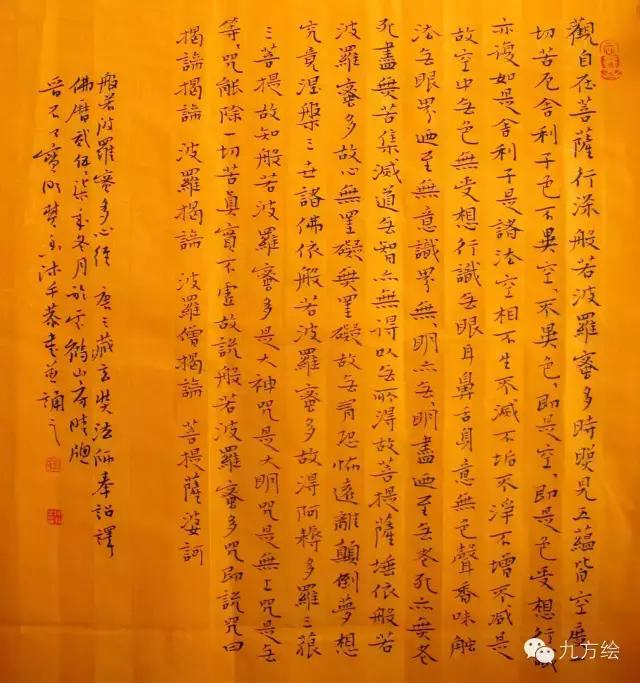 觀自在菩薩行深般若波羅蜜多時照見五蘊皆空度
切苦厄舍利子色不異空、不異色、即是空、即是色受想行識
亦復如是舍利子是諸法空相不生不滅不垢不淨不增不減是
故空中无色無受想行識无眼耳鼻舌身意無色聲香味觸
法无眼界迺至無意識界無、明亦无、明盡迺至无老死亦無老
死盡無苦集滅道无智亦無得以无所得故菩提薩埵依般若
波羅蜜多故心無罣礙無罣礙故无有恐怖遠離顛倒夢想
究竟涅槃三世諸佛依般若波羅蜜多故得阿耨多羅三藐
三菩提故知般若波羅蜜多是大神咒是大明咒是無上咒是无
等、咒能除一切苦真實不虛故說般若波羅蜜多咒即說咒曰
揭諦揭諦 波羅揭諦 波羅僧揭諦 菩提薩婆訶
般若波羅蜜多心經 唐三藏玄奘法師奉詔譯
佛曆貳伍柒 冬月於 鶴山房晴牕
沐手恭書並誦之
九方绘